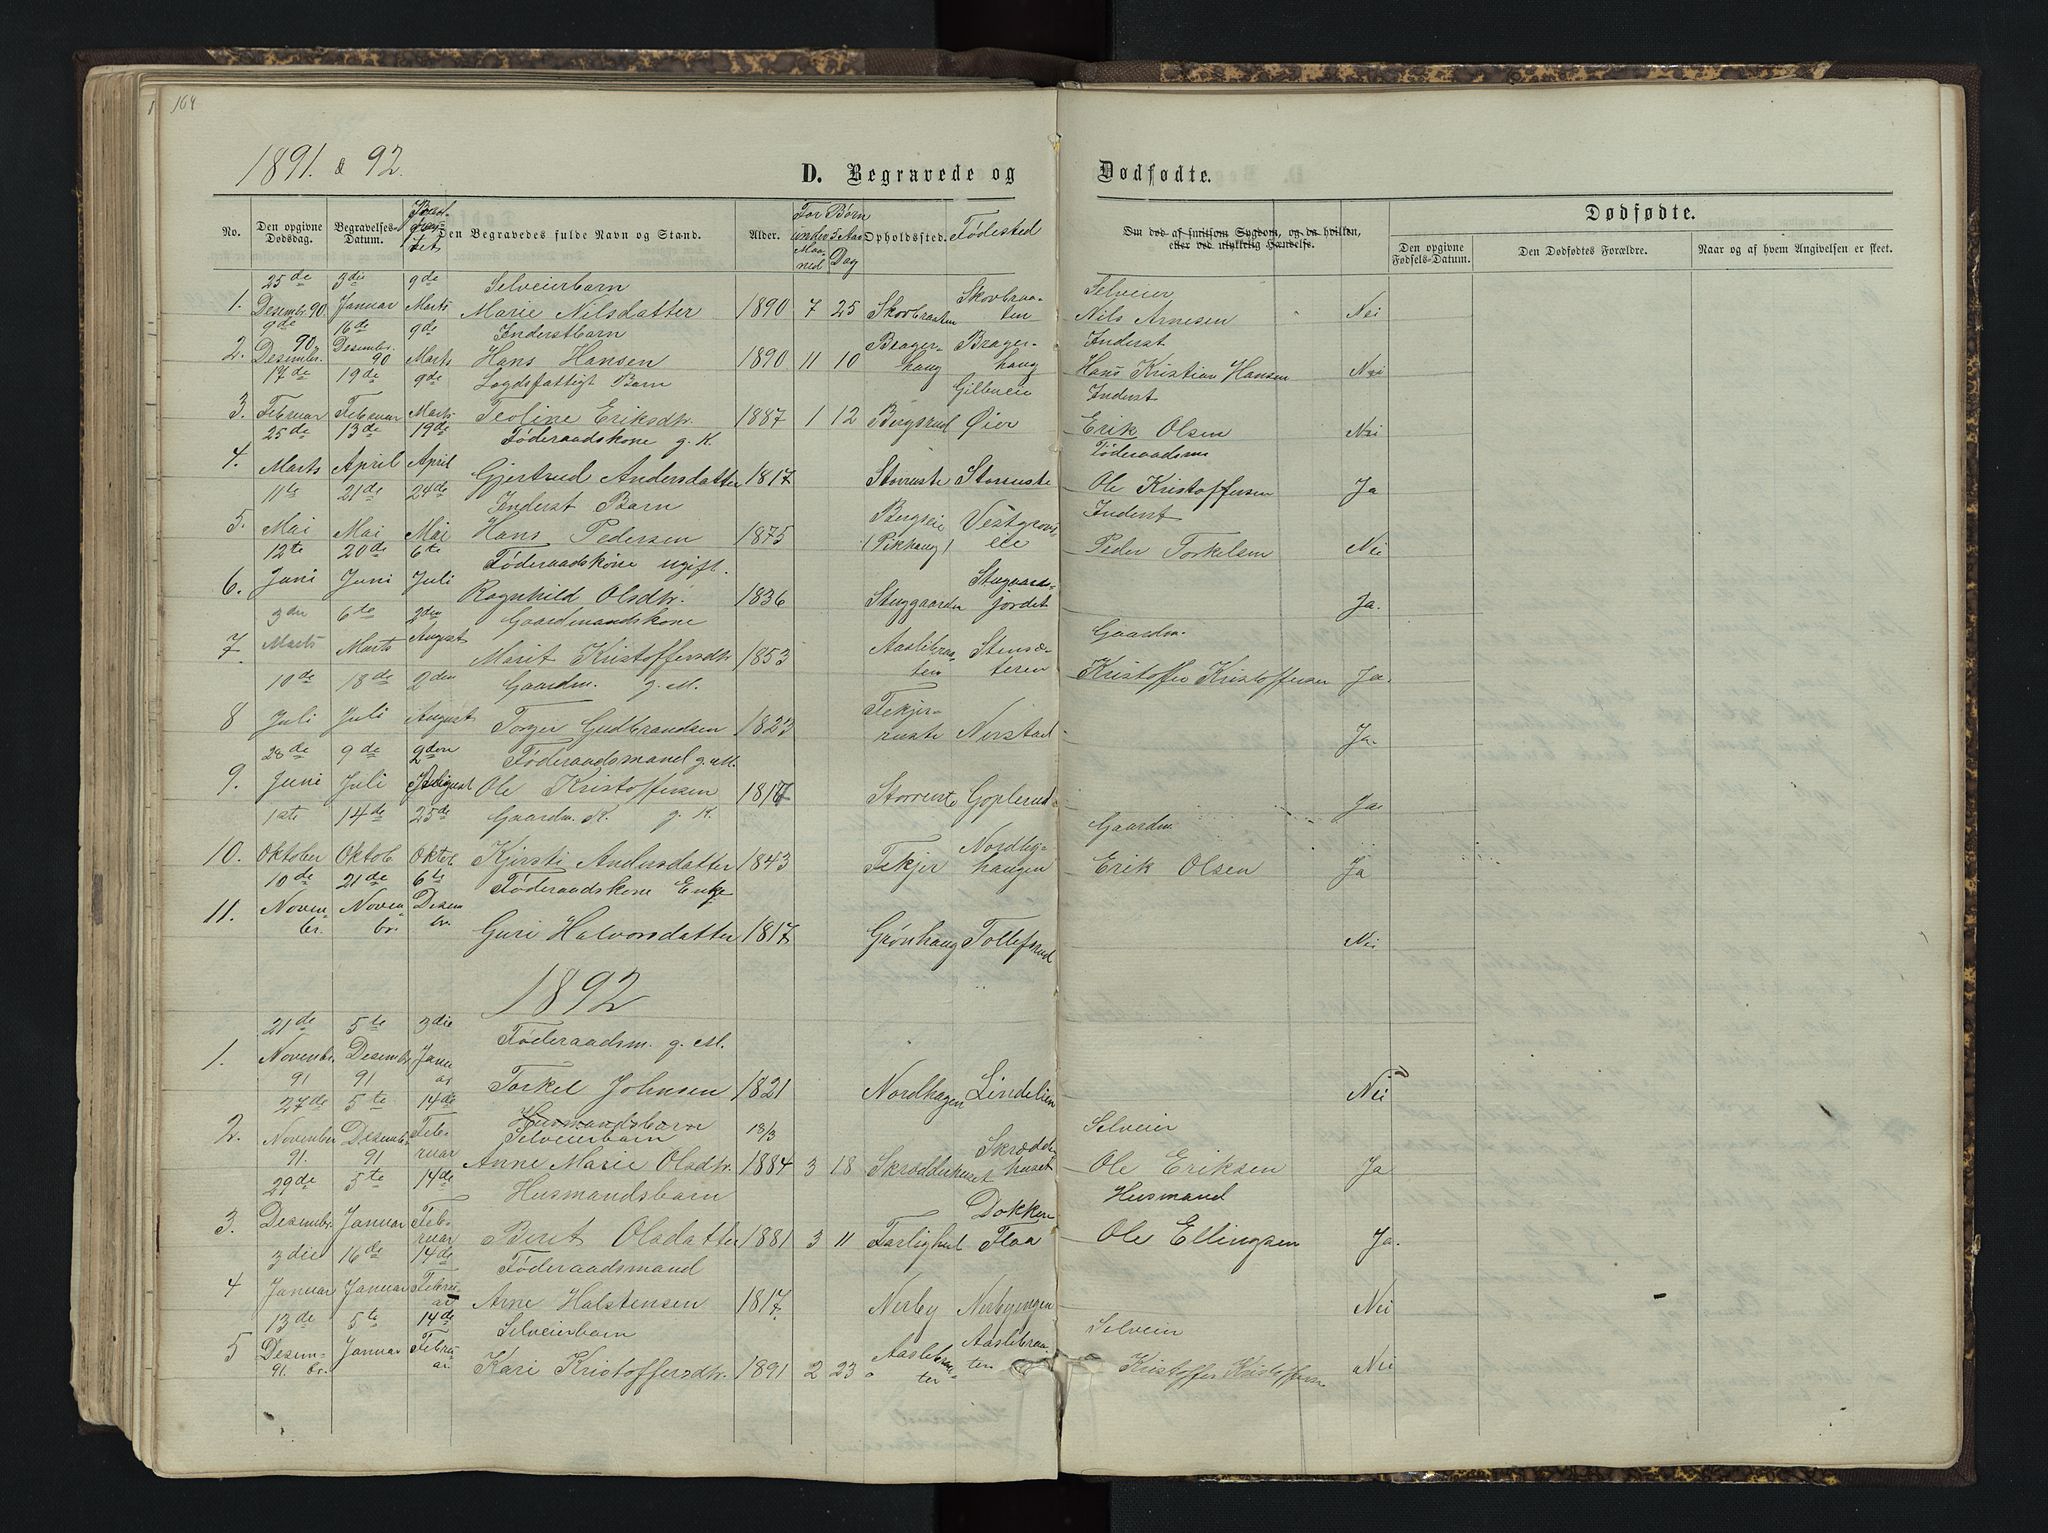 164
1891. & 92.
D. Begravede og Dødfødte.
No. Den opgivne Dødsdag. Begravelses-Datum. Den Begravedes fulde Navn og Stand. Alder. For Børn under 5 Aar Maaned Dag Opholdssted. Fødested Om død af smitsom Sygdom, og da hvilken, eller ved ulykkelig Hændelse. Dødfødte.
Den opgivne Fødsels-Datum. Den Dødfødtes Forældre. Naar og af hvem Angivelsen er skeet.
25de 3die 9de Selveierbarn Selveier
1. Desembr. 90 Januar Marts Marie Nilsdatter 1890 7 25 Skovbraaten Skovbraaten Nils Arnesen Nei
9de 16de 9de Inderstbarn Inderst
2. Desembr. 90 Desembr. 90 Marts Hans Hansen 1890 11 10 Bragerhaug Bragerhaug Hans Kristian Hansen Nei
17de 19de 9de Legdsfattigt Barn Inderst
3. Februar Februar Marts Teoline Eriksdtr. 1887 1 12 Bergsrud Øier Erik Olsen Nei
25de 13de 19de Føderaadskone g. K. Føderaadsm
4. Marts April April Gjertrud Andersdatter 1817 Storruste Storruste Ole Kristoffersen Ja
11te 21de 24de Inderst Barn Inderst
5. Mai Mai Mai Hans Pedersen 1875 Bergseie (Pikhaug) Peder Torkelsen Nei
12te 20de 6te Føderaadskone ugift.
6. Juni Juni Juli Ragnhild Olsdtr. 1836 Stuggaarden Stugaardsjordet Ja.
3die 6te 2den Gaardmandskone Gaardm.
7 Marts Marts August Marit Kristoffersdtr. 1853 Aaslibraaten Stensæteren Kristoffer Kristoffersen Ja.
10de 18de 2den Gaardm. g. M.
8 Juli Juli August Torger Gudbrandsen 1823 Tekjerruste Nerstad Ja.
28de 9de 9den Føderaadsmand g. M.
9. Juni Juli August Ole Kristoffersen 1817 Storruste Goplerud Ja.
1ste 14de 25de Gaardm. K. g. K. Gaardm.
10. Oktober Oktob. Oktob. Kjersti Andersdatter 1843 Tekjer Nordlighaugen Erik Olsen Ja
10de 21de 6te Føderaadskone Enke
11. Novenbr. Novenbr. Desembr. Guri Halvorsdatter 1817 Grønhaug Tollefsrud Nei
1892
21de 5te 3die Føderaadsm. g. M.
1. Novenbr. 91 Desembr. 91 Januar Torkel Johnsen 1821 Nordhagen Lindelien Nei
27de 5te 14de Husmandsbarn Selveierbarn 18/3 Selveier
2. November 91. Desembr. 91 Februar Anne Marie Olsdtr. 1884 3 18 Skrædderhuset Skrædderhuset Ole Eriksen Ja
29de 5te 14de Husmandsbarn Husmand
3. Desembr. Januar Februar Berit Olsdatter 1881 3 11 Dokken Flaa Ole Ellingsen Ja.
3die 16de 14de Føderaadsmand
4 Januar Januar Februar Arne Halstensen 1817 Nerby Nerbyengen Nei
13de 5te 14de Selveierbarn Selveier
5 Desembr. 91. Januar Februar Kari Kristoffersdtr. 1891 2 23 Aaslibraaten Aaslibraaten Kristoffer Kristoffersen Nei